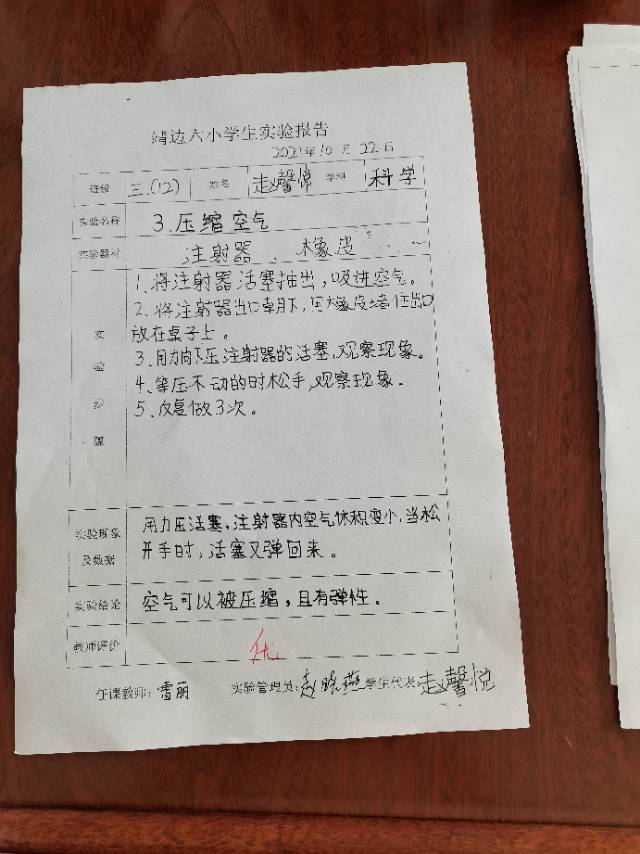 靖边六小学生实验报告
2021年10月22日
班级 三.(12) 姓名 赵馨悦 学科 科学
实验名称 3.压缩空气
实验器材 注射器、橡皮
实验步骤
1.将注射器活塞抽出,吸进空气。
2.将注射器出口朝下,用橡皮堵住出口
放在桌子上。
3.用力向下压注射器的活塞,观察现象。
4.等压不动的时松手,观察现象。
5.反复做3次。
实验现象及数据
用力压活塞,注射器内空气体积变小,当松
开手时,活塞又弹回来。
实验结论 空气可以被压缩,且有弹性。
教师评价 优
任课教师:雷丽 实验管理员:赵晓燕 学生代表:赵馨悦